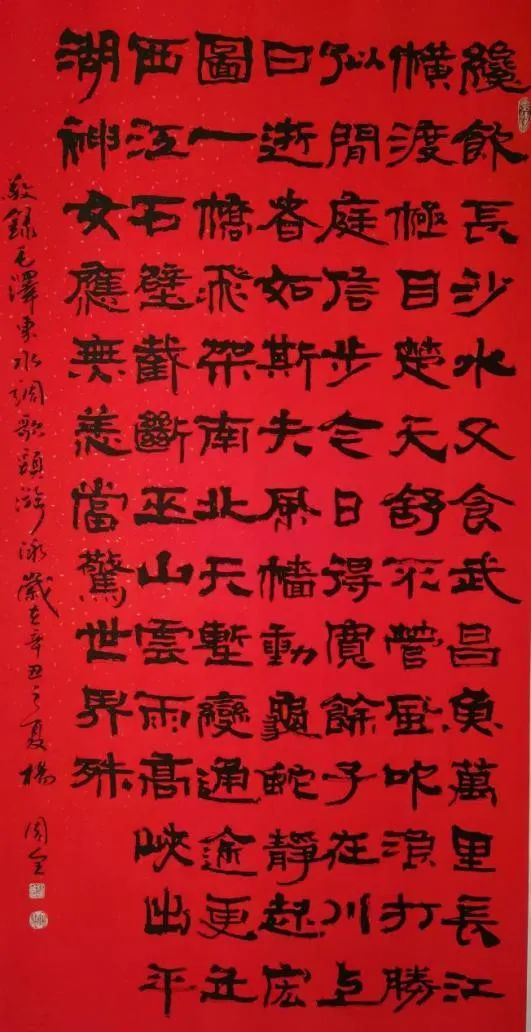 纔飲長沙水又食武昌魚萬里長江
橫渡極目楚天舒不管風吹浪打勝
似閒庭信步今日得寬餘子在川上
曰逝者如斯夫風檣動龜蛇靜起宏
圖一橋飛架南北天塹變通途更立
西江石壁截斷巫山雲雨高峽出平
湖神女應無恙當驚世界殊
敬錄毛澤東水調歌頭游泳歲在辛丑之夏楊周